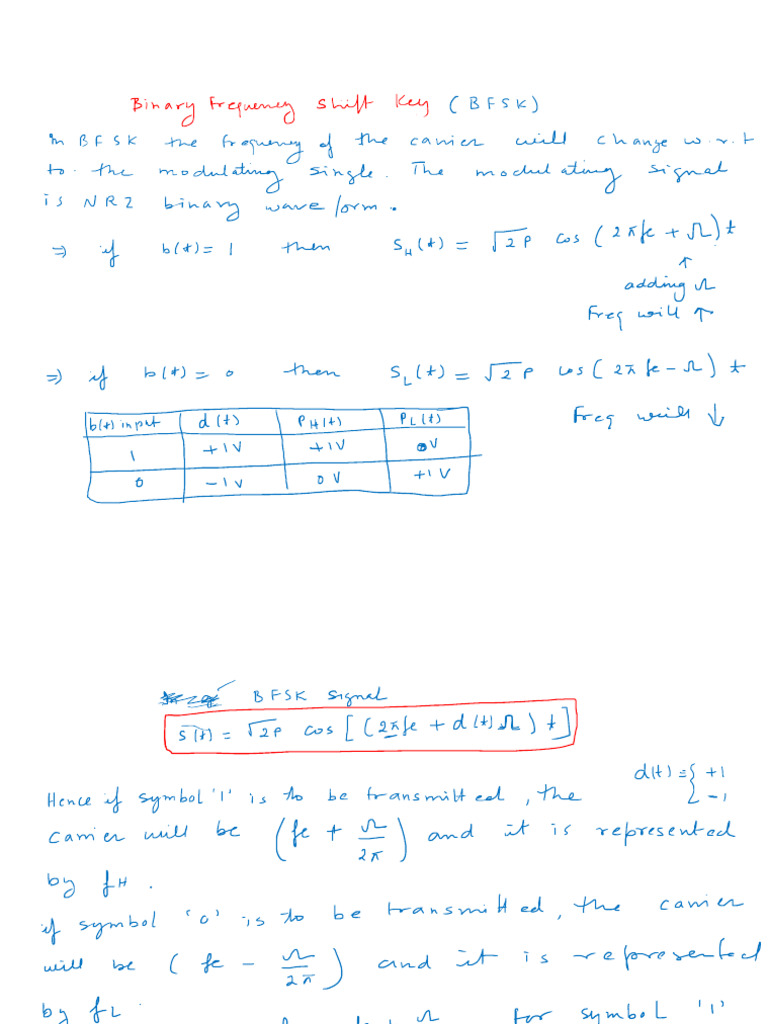 Binary Frequency Shift Key (BFSK)
In BFSK the frequency of the carrier will change w.r.t
to the modulating single. The modulating signal
is NRZ binary wave form.
⇒ if b(t)= 1 then S_H(t) = √2P cos (2πfc + Ω)t
↑
adding Ω
Freq will ↑
⇒ if b(t) = 0 then S_L(t) = √2P cos(2πfc - Ω) t
Freq will ↓
b(t) input d(t) P_H(t) P_L(t)
1 +1V +1V 0V
0 -1V 0V +1V
BFSK signal
S(t) = √2P cos [(2πfc + d(t)Ω) t]
d(t) = { +1
-1
Hence if symbol '1' is to be transmitted, the
carrier will be (fc + Ω/2π) and it is represented
by fH.
if symbol '0' is to be transmitted, the carrier
will be (fc - Ω/2π) and it is represented
by fL.
Ω for symbol '1'